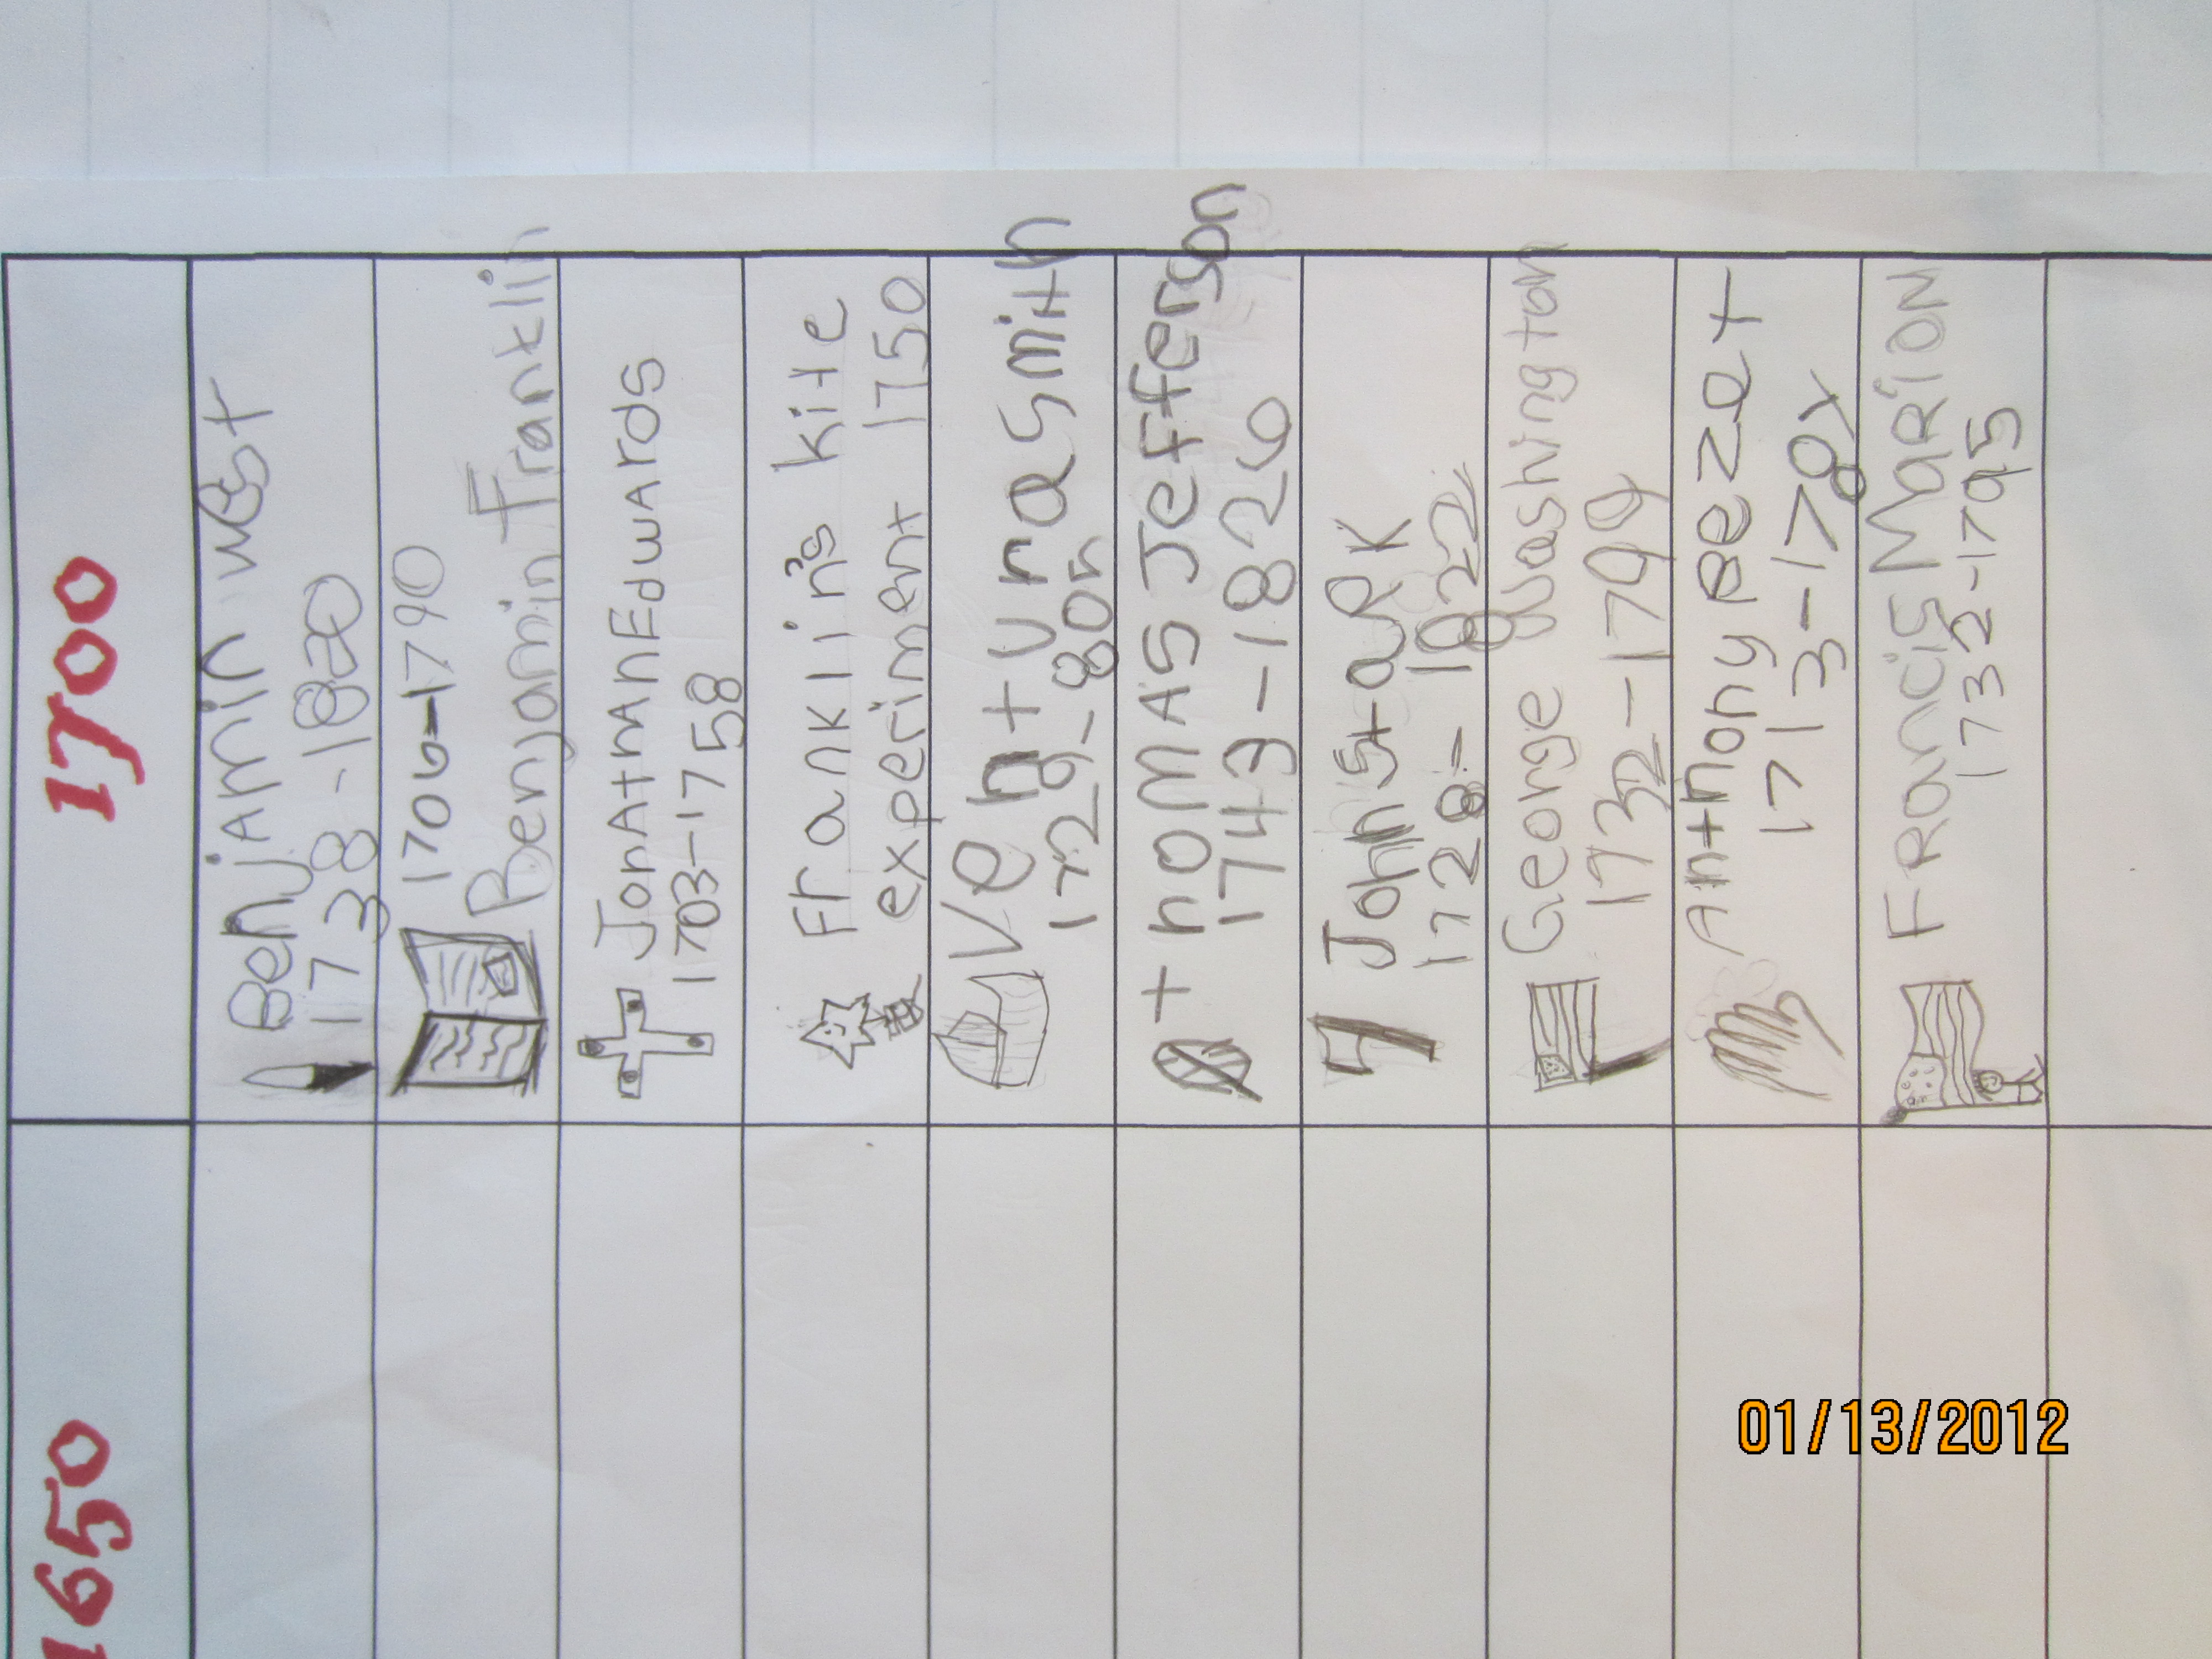 1650
1700
Benjamin west
1738-1820
1706-1790
Benjamin Franklin
JonAtmAnEdwards
1703-1758
Franklin's kite
experiment 1750
Ventura smith
thomas Jefferson
1743-1826
John stark
1728-1822
George Washington
1732-1799
Anthony Bezet
1713-178
Francis Marion
1732-1795
01/13/2012